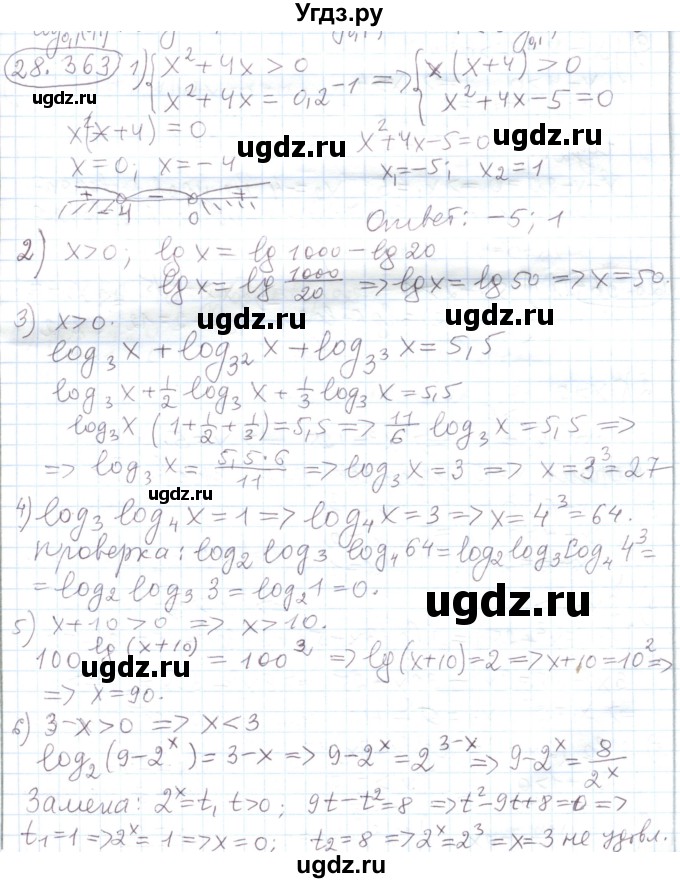 Угдз.ру
28.363 1) {x² + 4x > 0 {x(x+4) > 0
ugdz.ru {x² + 4x = 0,2⁻¹ => {x² + 4x - 5 = 0
x(x+4) = 0 ugdz.ru x² + 4x - 5 = 0 ugdz.ru
x = 0; x = -4 x₁ = -5; x₂ = 1
+ -4 - 0 +
Ответ: -5; 1
2) x > 0; lg x = lg 1000 - lg 20
lg x = lg 1000/20 => lg x = lg 50 => x = 50.
3) x > 0. ugdz.ru ugdz.ru
log₃ x + log₃² x + log₃³ x = 5,5
log₃ x + 1/2 log₃ x + 1/3 log₃ x = 5,5
log₃ x (1 + 1/2 + 1/3) = 5,5 => 11/6 log₃ x = 5,5 =>
=> log₃ x = 5,5·6/11 => log₃ x = 3 => x = 3³ = 27
ugdz.ru
4) log₃ log₄ x = 1 => log₄ x = 3 => x = 4³ = 64.
Проверка: log₂ log₃ log₄ 64 = log₂ log₃ log₄ 4³ =
= log₂ log₃ 3 = log₂ 1 = 0.
ugdz.ru
5) x + 10 > 0 => x > 10.
100^lg(x+10) = 100² => lg(x+10) = 2 => x + 10 = 10² =>
=> x = 90.
6) 3 - x > 0 => x < 3
log₂(9 - 2ˣ) = 3 - x => 9 - 2ˣ = 2³⁻ˣ => 9 - 2ˣ = 8/2ˣ
Замена: 2ˣ = t, t > 0; 9t - t² = 8 => t² - 9t + 8 = 0 =>
t₁ = 1 => 2ˣ = 1 => x = 0; t₂ = 8 => 2ˣ = 2³ = x = 3 не удовл.
ugdz.ru ugdz.ru